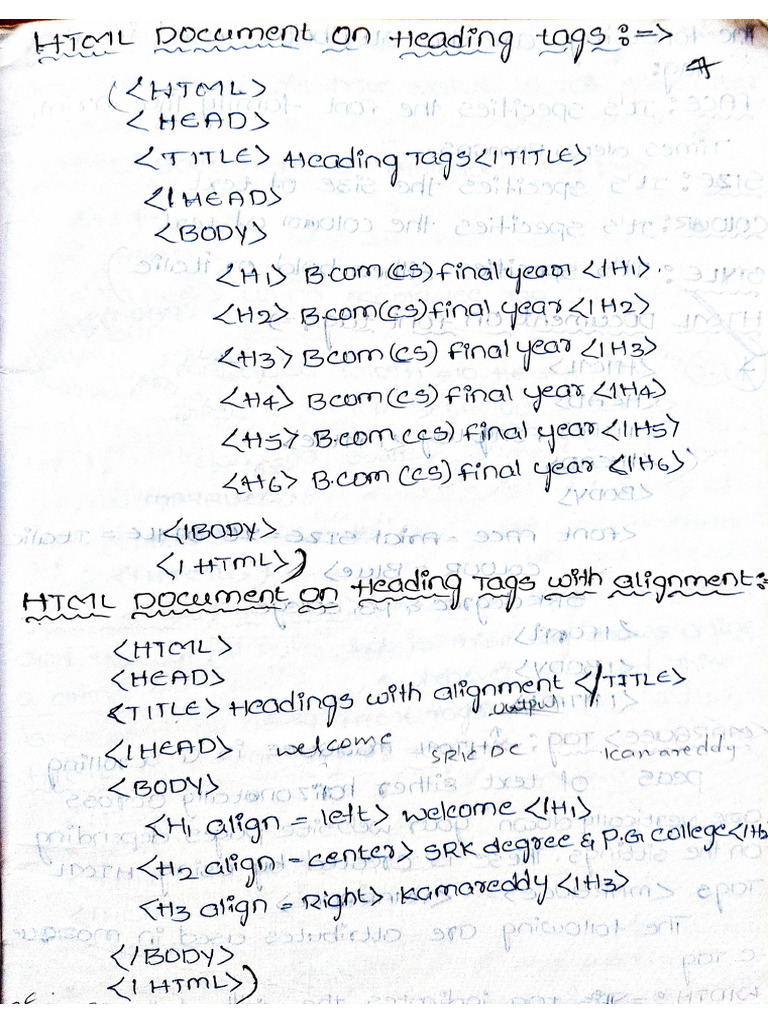 HTML Document on Heading tags:=>
(<HTML>
<HEAD>
<TITLE> Heading Tags</TITLE>
</HEAD>
<BODY>
<H1> B.com(cs) final year </H1>.
<H2> B.com(cs) final year </H2>
<H3> B.com(cs) final year </H3>
<H4> B.com(cs) final year </H4>
<H5> B.com(cs) final year </H5>
<H6> B.com (cs) final year </H6>
</BODY>
</HTML>)
HTML Document on Heading Tags with alignment:-
<HTML>
<HEAD>
<TITLE> Headings with alignment </TITLE>
output
</HEAD> welcome SRK DC Kamareddy
<BODY>
<H1 align = left> welcome </H1>
<H2 align = center> SRK degree & P.G college</H2
<H3 align = Right> Kamareddy </H3>
</BODY>
</HTML>)